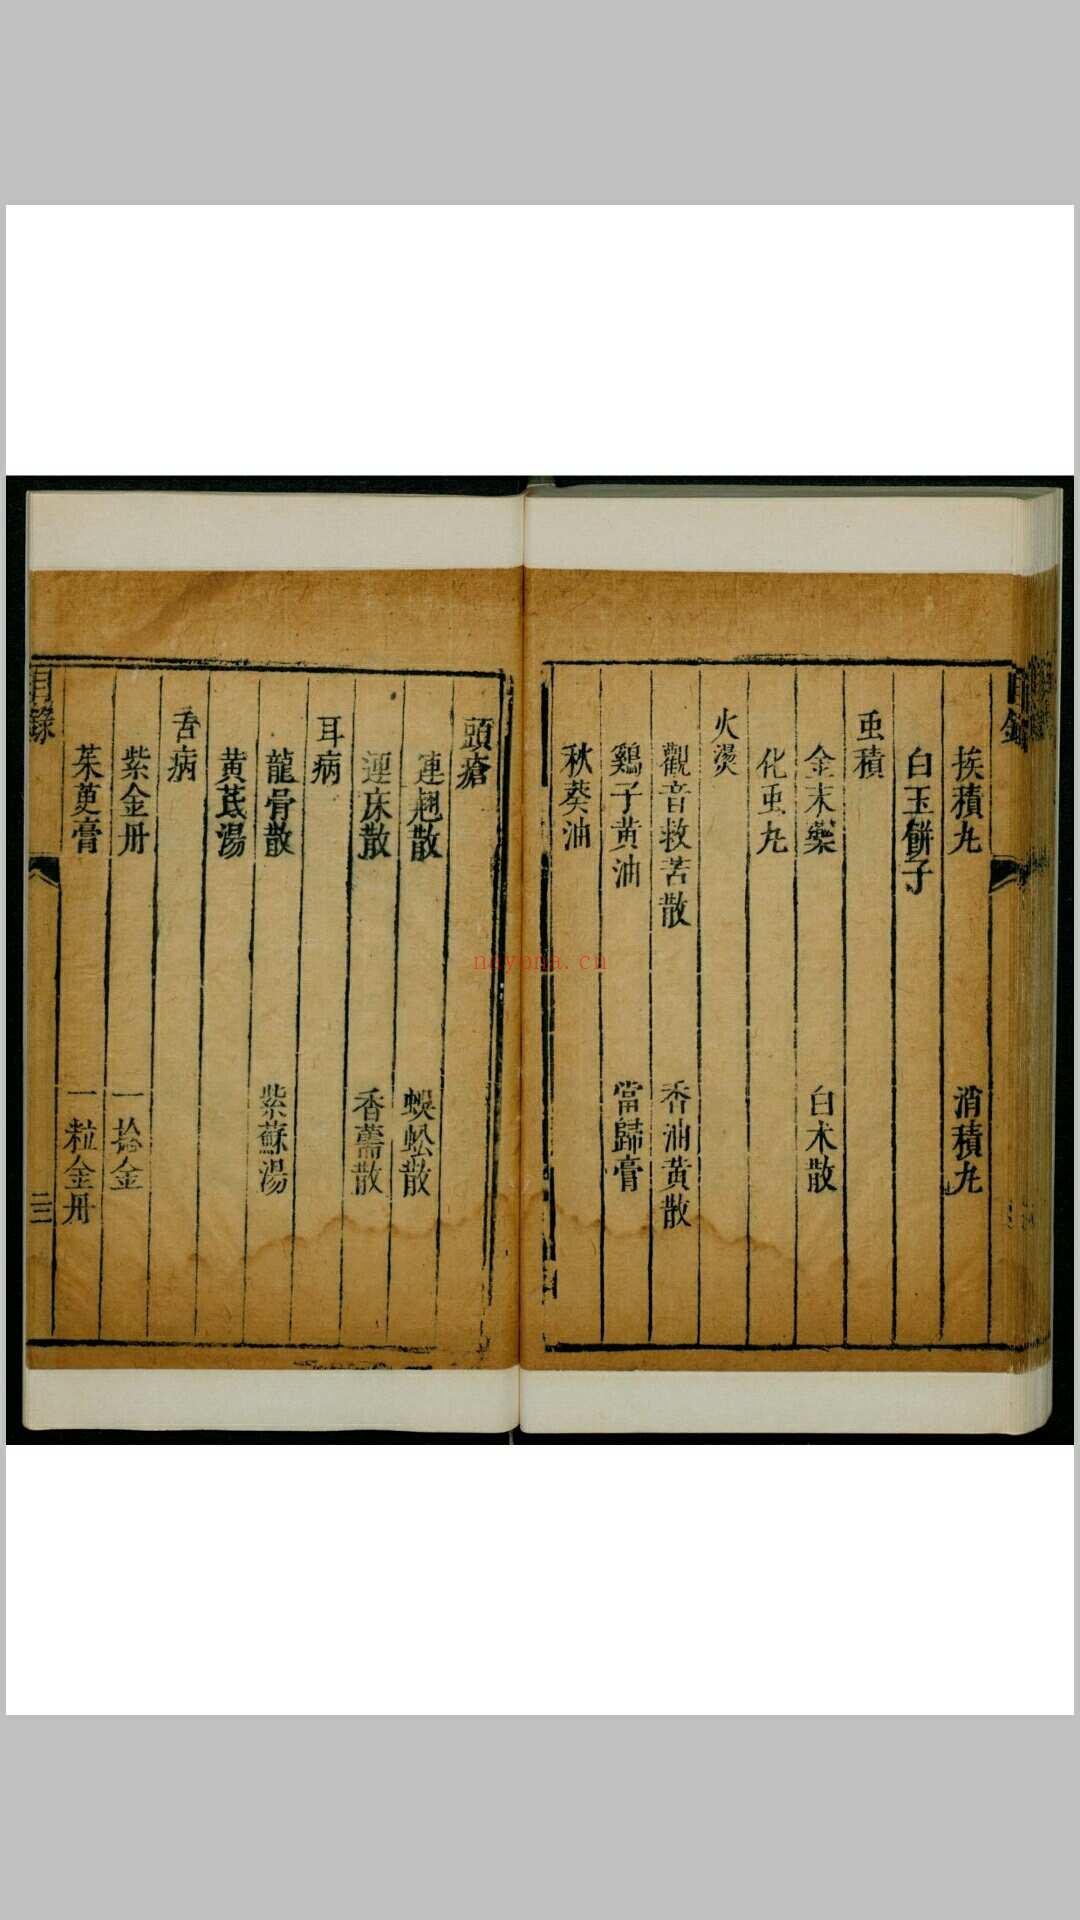 目錄
挨積丸 消積丸
白玉餅子
虫積
金末藥 白术散
化虫丸
火燙
觀音救苦散 香油黄散
鷄子黄油 當歸膏
秋葵油
頭瘡
連翹散 蜈蚣散
連床散 香薷散
耳病
龍骨散 紫蘇湯
黄芪湯
舌病
紫金丹 一捻金
茱萸膏 一粒金丹
目錄 二三
noyona.cn